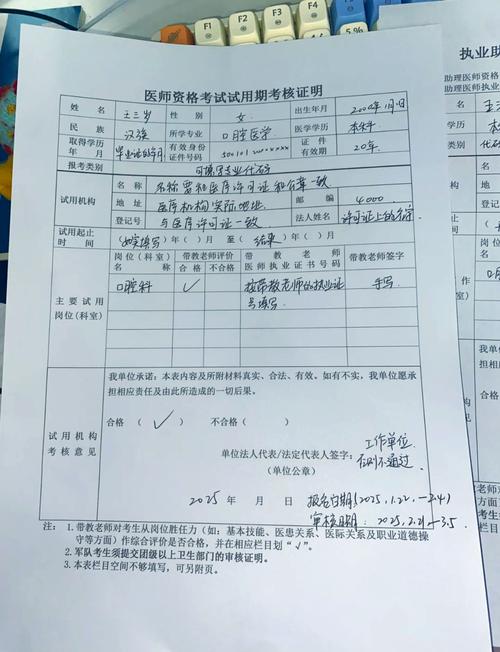 F1 F2 F3 F4
医师资格考试试用期考核证明
姓 名 王三岁 性 别 女 出生年月 2000年1月1日
民 族 汉族 所学专业 口腔医学 医学学历 本科
取得学历 年 月 毕业证的年月 有效身份证件号码 500101 证件有效期 20年
报考类别 可填写专业代码
试用机构
名 称 名称要和医疗许可证和公章一致
地 址 医疗机构实际地址 邮 编 4000
登记号 与医疗许可证一致 法人姓名 许可证上的名字
试用起止时间 (如实填写)年( )月 至 (结束)年( )月
主要试用岗位(科室)
岗位(科室)名称 带教老师评价 合格 不合格 带教老师医师执业证书号码 带教老师签字
口腔科 ✓ 按带教老师的执业证号填写 手写
试用机构考核意见
我单位承诺:本表内容及所附材料真实、合法、有效。如有不实,我单位愿承
担相应责任及由此所造成的一切后果。
合格( ✓ ) 不合格( )
单位法人代表/法定代表人签字: 工作单位
(单位公章) 否则不通过
2025 年 月 日 报名日期(2025.1.22.—2.4)
审核日期: 2025.2.21—3.5
注: 1.带教老师对考生从岗位胜任力(如:基本技能、医患关系、医际关系及职业道德操
守等方面)作综合评价是否合格,并在相应栏目划“√”。
2.军队考生须提交团级以上卫生部门的审核证明。
3.本表栏目空间不够填写,可另附页。
执业助
助理医师资格
助理医师执业
姓名
有学历
代码